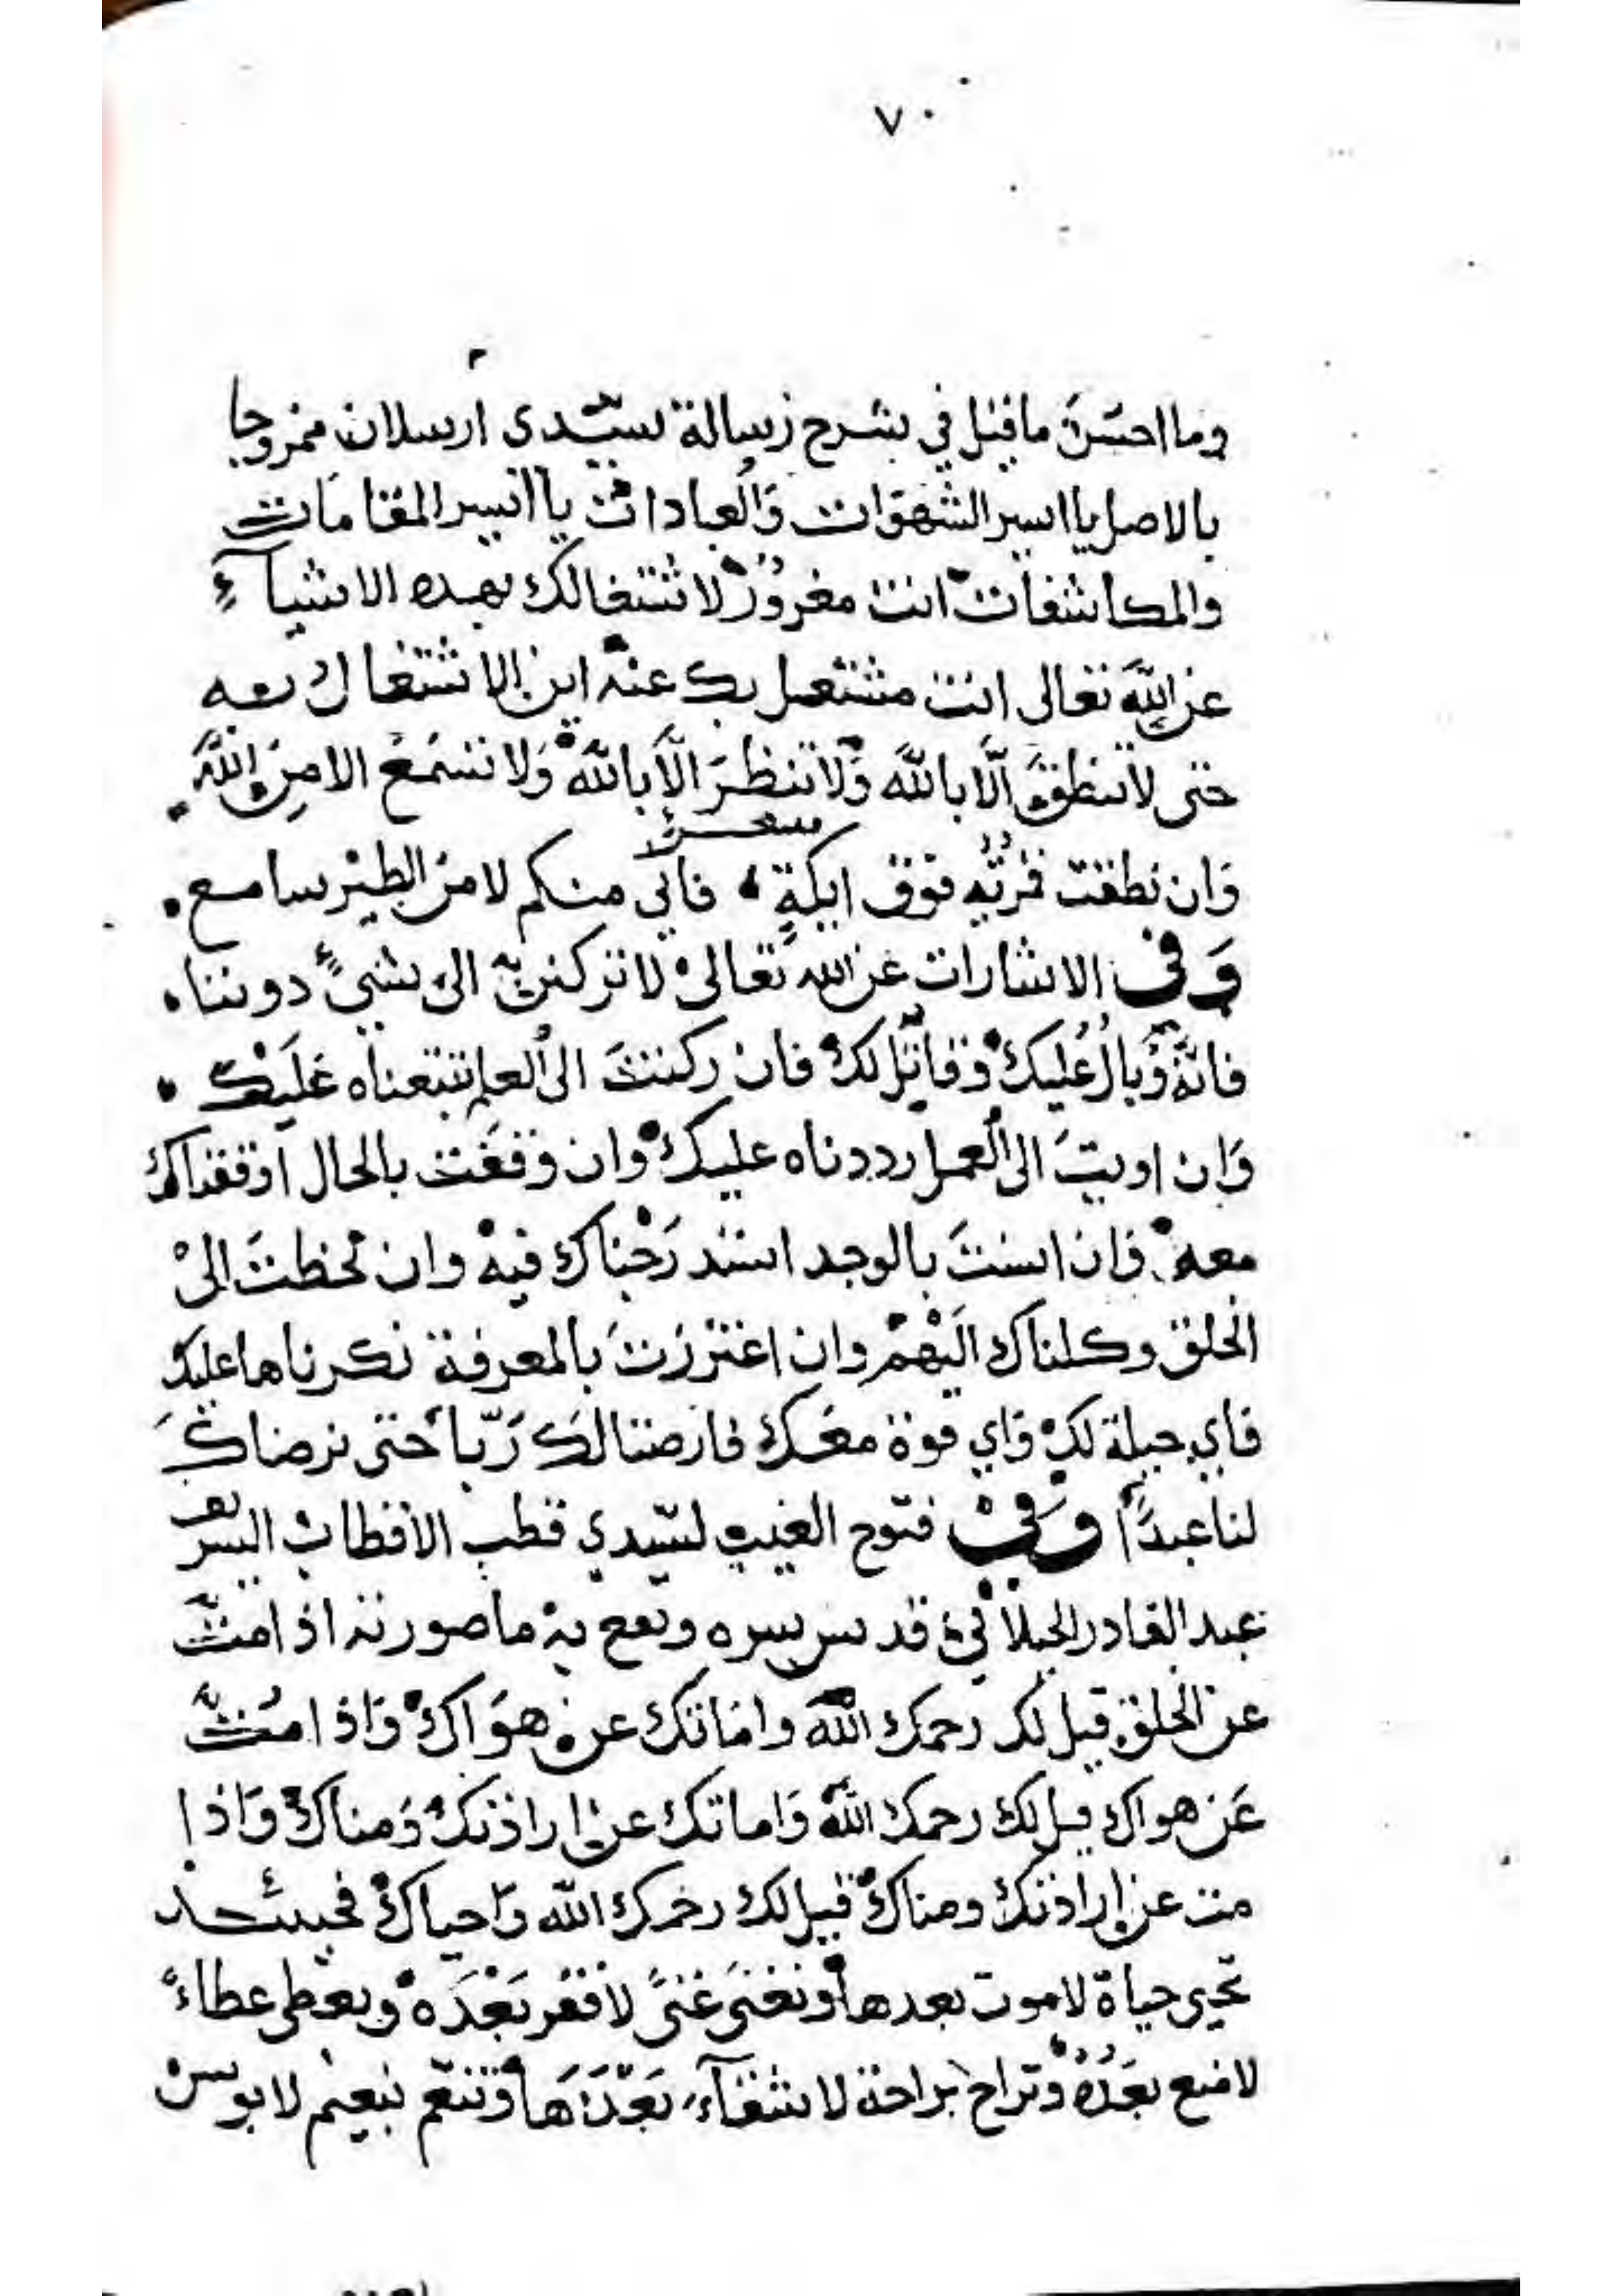 ٧٠
وما احسن ما قيل في شرح رسالة سيّدى ارسلان ممزوجا
بالاصل يا اسير الشهوات والعبادات يا اسير المقامات
والمكاشفات انت مغرورٌ لاشتغالك بهذه الاشياء
عن الله تعالى انت مشتغل بك عنه اين الاشتغال به
حتى لا تنطق الّا بالله ولا تنظر الّا بالله ولا تسمع الا من الله
شعر
وان نطقت قمريّه فوق ايكةٍ ، فاني منكم لا من الطير سامع .
وفى الاشارات عن الله تعالى لا تركنن الى شيءٍ دوننا .
فانه وبالٌ عليك وقاتل لك فان ركنت الى العلم تتبعناه عليك .
وان اويت الى العمل رددناه عليك وان وقفت بالحال اوقفناك
معه فان انست بالوجد استدرجناك فيه وان لحظت الى
الخلق وكلناك اليهم وان اغتررت بالمعرفة نكرناها عليك
فاي حيلة لك واي قوة معك فارضنا لك ربّا حتى نرضاك
لنا عبدًا وفي فتوح الغيب لسيّدي قطب الاقطاب السر
عبد القادر الجيلاني قدس سره ونفع به ما صورته اذا متّ
عن الخلق قيل لك رحمك الله واماتك عن هواك واذا متّ
عن هواك قيل لك رحمك الله واماتك عن ارادتك ومناك واذا
مت عن ارادتك ومناك قيل لك رحمك الله واحياك فحينئذ
تحيى حياة لا موت بعدها وتغنى غنىً لا فقر بعده وتعطى عطاءً
لا منع بعده وتراح براحة لا شقآء بعدها وتنعم بنعيم لا بوس